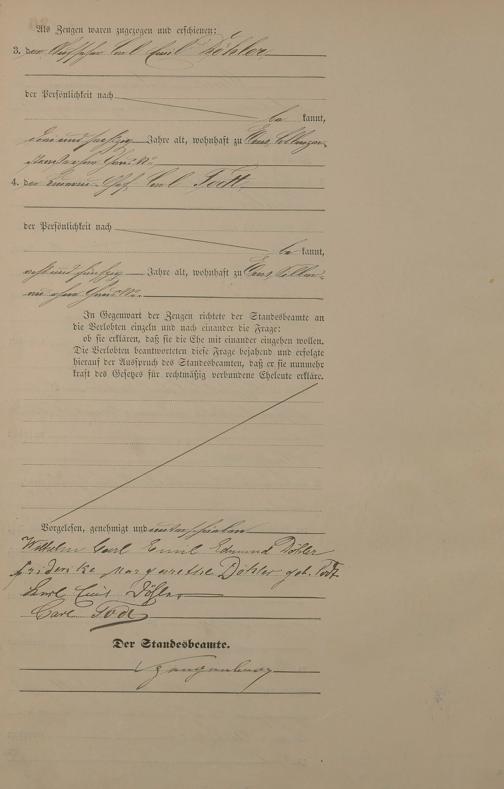 Als Zeugen waren zugezogen und erschienen:
3. der Carl Emil Döhler
der Persönlichkeit nach
be kannt,
ein und fünfzig Jahre alt, wohnhaft zu Ems,
4. der Carl Todt
der Persönlichkeit nach
be kannt,
acht und fünfzig Jahre alt, wohnhaft zu Ems,
In Gegenwart der Zeugen richtete der Standesbeamte an
die Verlobten einzeln und nach einander die Frage:
ob sie erklären, daß sie die Ehe mit einander eingehen wollen.
Die Verlobten beantworteten diese Frage bejahend und erfolgte
hierauf der Ausspruch des Standesbeamten, daß er sie nunmehr
kraft des Gesetzes für rechtmäßig verbundene Eheleute erkläre.
Vorgelesen, genehmigt und unterschrieben
Wilhelm Carl Emil Edmund Döhler
Friderike Margarethe Döhler geb. Todt
Karl Emil Döhler
Carl Todt
Der Standesbeamte.